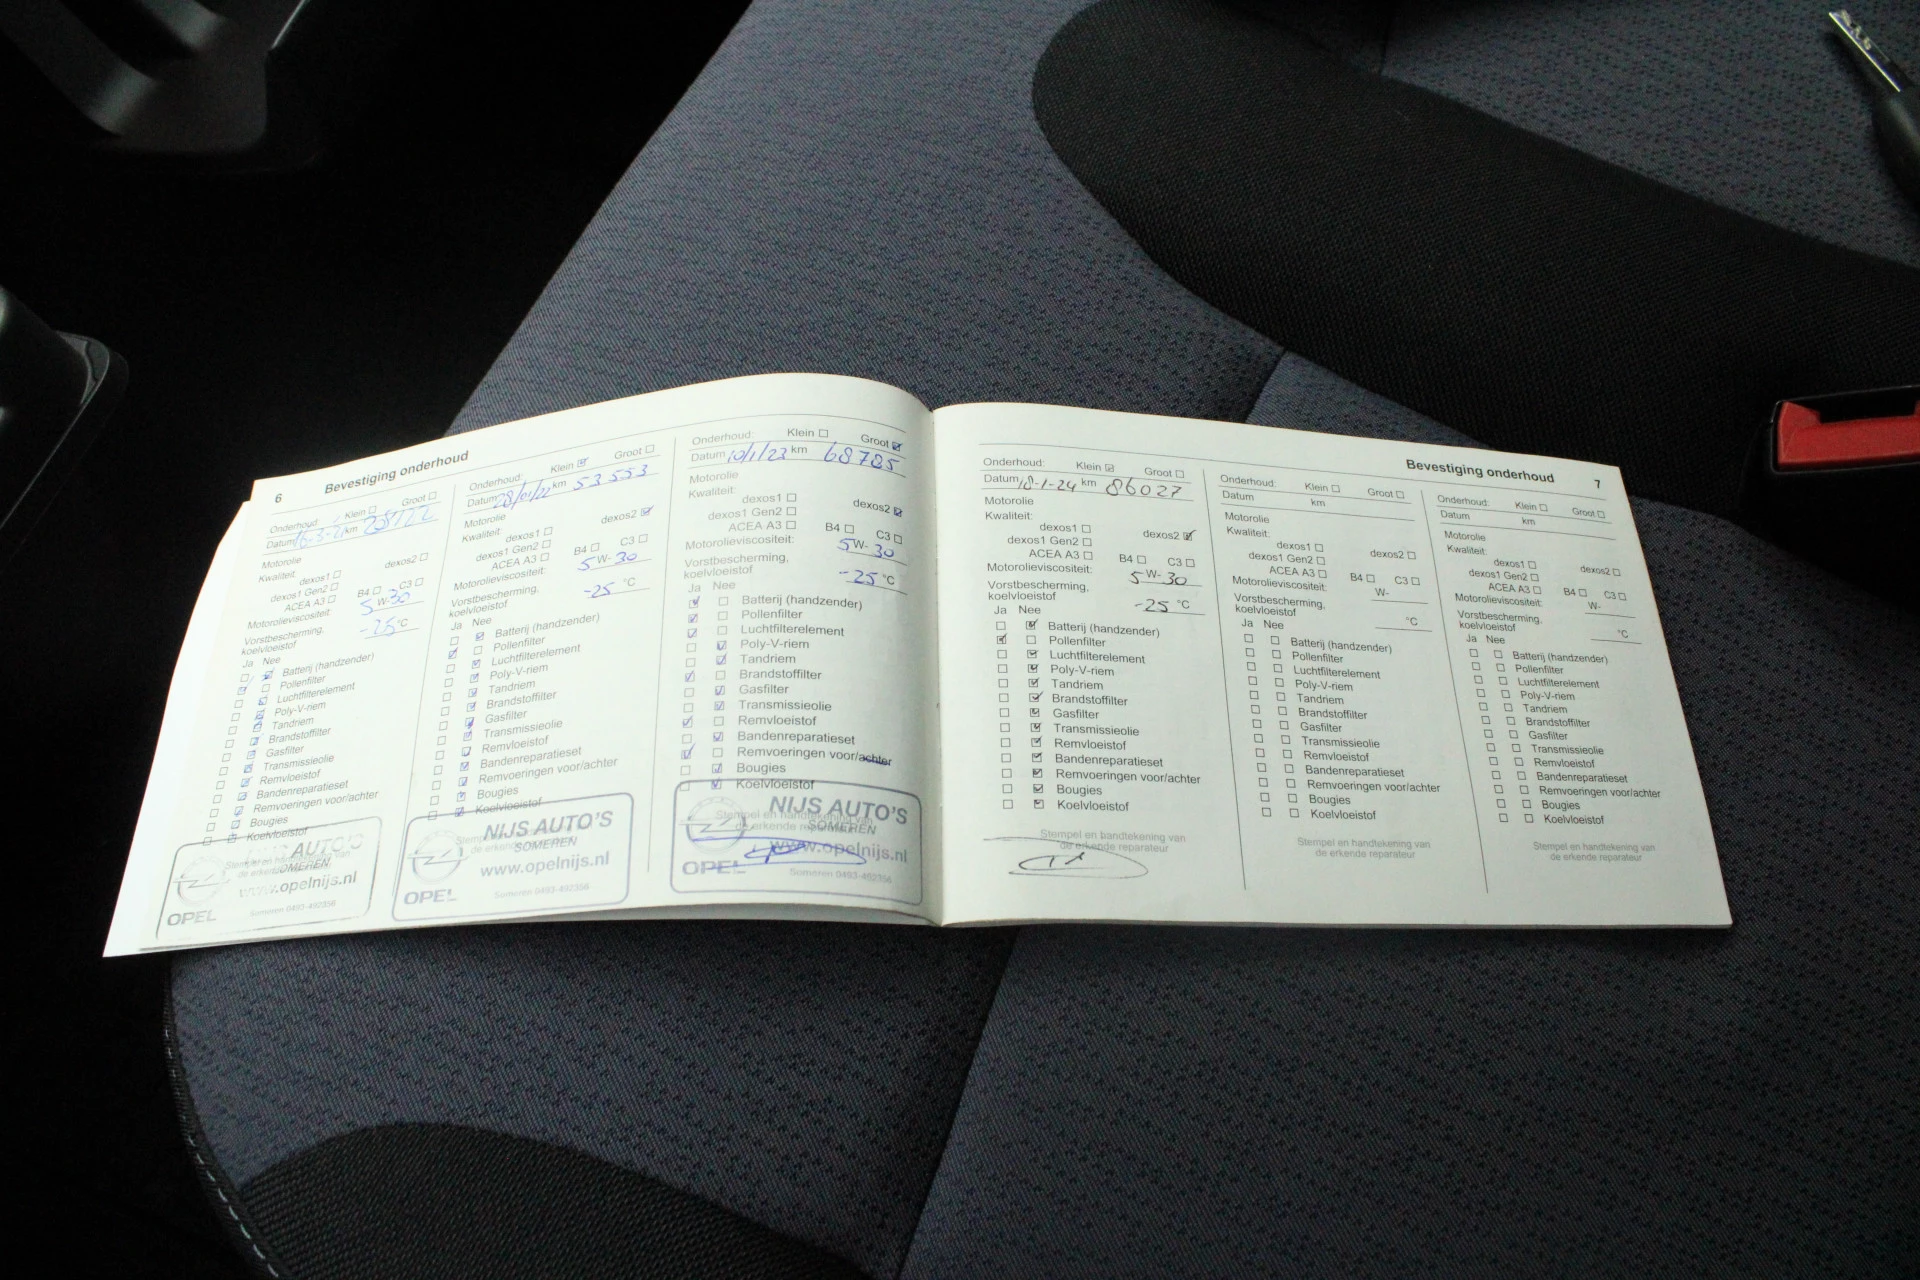 6 Bevestiging onderhoud
Onderhoud: Klein Groot
Datum 16-3-21 km
Motorolie
Kwaliteit: dexos1 dexos2
dexos1 Gen2
ACEA A3 B4 C3
Motorolieviscositeit: 5 W- 30
Vorstbescherming,
koelvloeistof -25 °C
Ja Nee
Batterij (handzender)
Pollenfilter
Luchtfilterelement
Poly-V-riem
Tandriem
Brandstoffilter
Gasfilter
Transmissieolie
Remvloeistof
Bandenreparatieset
Remvoeringen voor/achter
Bougies
Koelvloeistof
Stempel en handtekening van
de erkende reparateur
AUTO'S
SOMEREN
www.opelnijs.nl
OPEL Someren 0493-492356
Onderhoud: Klein Groot
Datum 28/01/22 km 53553
Motorolie
Kwaliteit: dexos1 dexos2
dexos1 Gen2
ACEA A3 B4 C3
Motorolieviscositeit: 5 W- 30
Vorstbescherming,
koelvloeistof -25 °C
Ja Nee
Batterij (handzender)
Pollenfilter
Luchtfilterelement
Poly-V-riem
Tandriem
Brandstoffilter
Gasfilter
Transmissieolie
Remvloeistof
Bandenreparatieset
Remvoeringen voor/achter
Bougies
Koelvloeistof
Stempel en handtekening van
de erkende reparateur
NIJS AUTO'S
SOMEREN
www.opelnijs.nl
OPEL Someren 0493-492356
Onderhoud: Klein Groot
Datum 10/1/23 km 68785
Motorolie
Kwaliteit: dexos1 dexos2
dexos1 Gen2
ACEA A3 B4 C3
Motorolieviscositeit: 5 W- 30
Vorstbescherming,
koelvloeistof -25 °C
Ja Nee
Batterij (handzender)
Pollenfilter
Luchtfilterelement
Poly-V-riem
Tandriem
Brandstoffilter
Gasfilter
Transmissieolie
Remvloeistof
Bandenreparatieset
Remvoeringen voor/achter
Bougies
Koelvloeistof
Stempel en handtekening van
de erkende reparateur
NIJS AUTO'S
SOMEREN
www.opelnijs.nl
OPEL Someren 0493-492356
Bevestiging onderhoud 7
Onderhoud: Klein Groot
Datum 18-1-24 km 86027
Motorolie
Kwaliteit: dexos1 dexos2
dexos1 Gen2
ACEA A3 B4 C3
Motorolieviscositeit: 5 W- 30
Vorstbescherming,
koelvloeistof -25 °C
Ja Nee
Batterij (handzender)
Pollenfilter
Luchtfilterelement
Poly-V-riem
Tandriem
Brandstoffilter
Gasfilter
Transmissieolie
Remvloeistof
Bandenreparatieset
Remvoeringen voor/achter
Bougies
Koelvloeistof
Stempel en handtekening van
de erkende reparateur
Onderhoud: Klein Groot
Datum km
Motorolie
Kwaliteit: dexos1 dexos2
dexos1 Gen2
ACEA A3 B4 C3
Motorolieviscositeit: W-
Vorstbescherming,
koelvloeistof °C
Ja Nee
Batterij (handzender)
Pollenfilter
Luchtfilterelement
Poly-V-riem
Tandriem
Brandstoffilter
Gasfilter
Transmissieolie
Remvloeistof
Bandenreparatieset
Remvoeringen voor/achter
Bougies
Koelvloeistof
Stempel en handtekening van
de erkende reparateur
Onderhoud: Klein Groot
Datum km
Motorolie
Kwaliteit: dexos1 dexos2
dexos1 Gen2
ACEA A3 B4 C3
Motorolieviscositeit: W-
Vorstbescherming,
koelvloeistof °C
Ja Nee
Batterij (handzender)
Pollenfilter
Luchtfilterelement
Poly-V-riem
Tandriem
Brandstoffilter
Gasfilter
Transmissieolie
Remvloeistof
Bandenreparatieset
Remvoeringen voor/achter
Bougies
Koelvloeistof
Stempel en handtekening van
de erkende reparateur